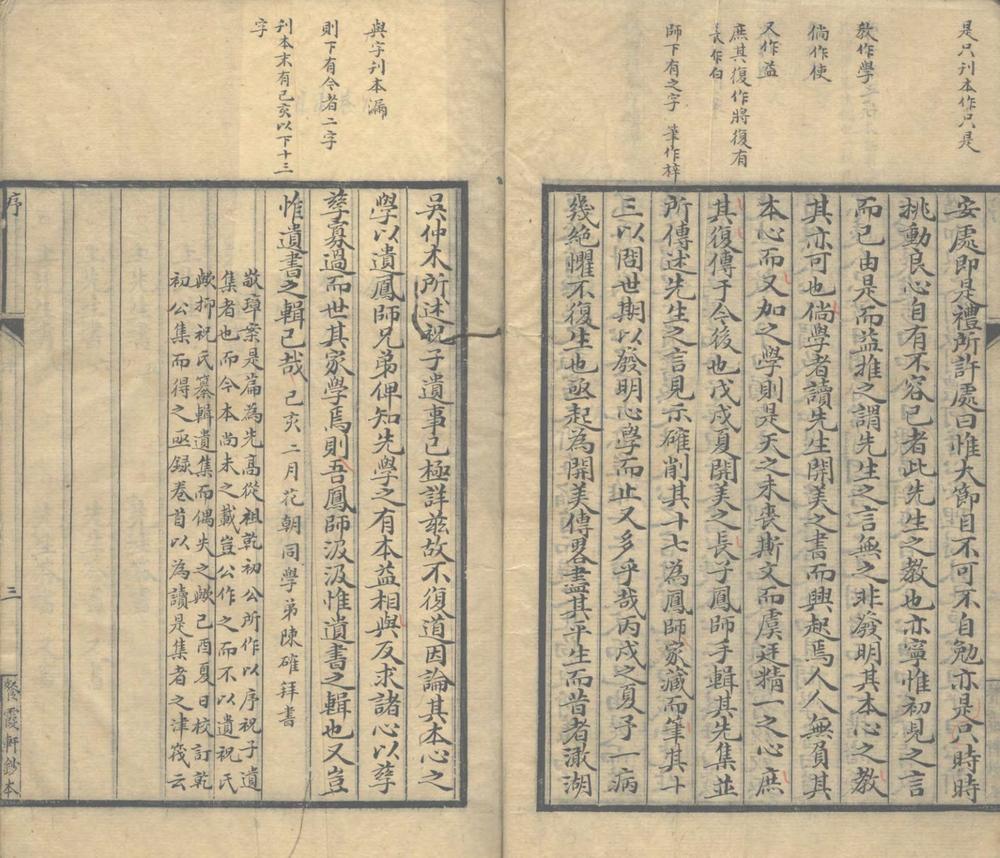 是只刊本作只是
教作學
倘作使
又作益
庶其復作將復有
長作白
師下有之字 筆作梓
安處即是禮所許處曰惟大節目不可不自勉亦是只時時
挑動良心自有不容已者此先生之教也亦寧惟初見之言
而已由是而益推之謂先生之言無之非發明其本心之教
其亦可也倘學者讀先生開美之書而興起焉人人無負其
本心而又加之學則是天之未喪斯文而虞廷精一之心庶
其復傳于今後也戊戌夏開美之長子鳳師手輯其先集並
所傳述先生之言見示確削其十七為鳳師家藏而筆其十
三以問世期以發明心學而止又多乎哉丙戌之夏予一病
幾絕懼不復生也亟起為開美傳畧盡其平生而昔者澉湖
與字刊本漏
則下有令者二字
刊本末有己亥以下十三
字
吳仲木所述祝子遺事已極詳茲故不復道因論其本心之
學以遺鳳師兄弟俾知先學之有本益相與反求諸心以孳
孳寡過而世其家學焉則吾鳳師汲汲惟遺書之輯也又豈
惟遺書之輯已哉 己亥二月花朝同學弟陳確拜書
敬璋案是篇為先高從祖乾初公所作以序祝子遺
集者也而今本尚未之載豈公作之而不以遺祝氏
歟抑祝氏纂輯遺集而偶失之歟己酉夏日校訂乾
初公集而得之亟録卷首以為讀是集者之津筏云
序
三
餐霞軒鈔本